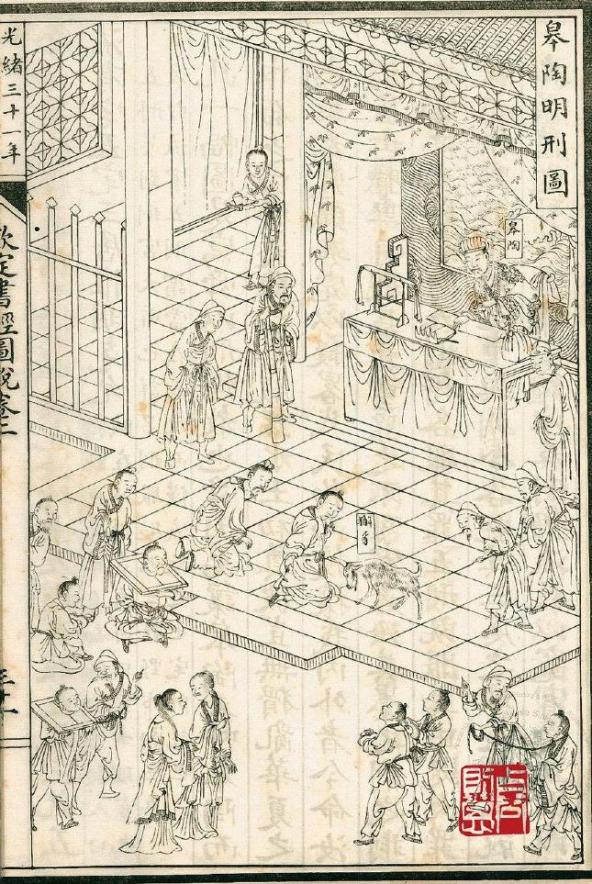 皋陶明刑圖
皋陶
獬豸
光緒三十一年
欽定書經圖說卷二